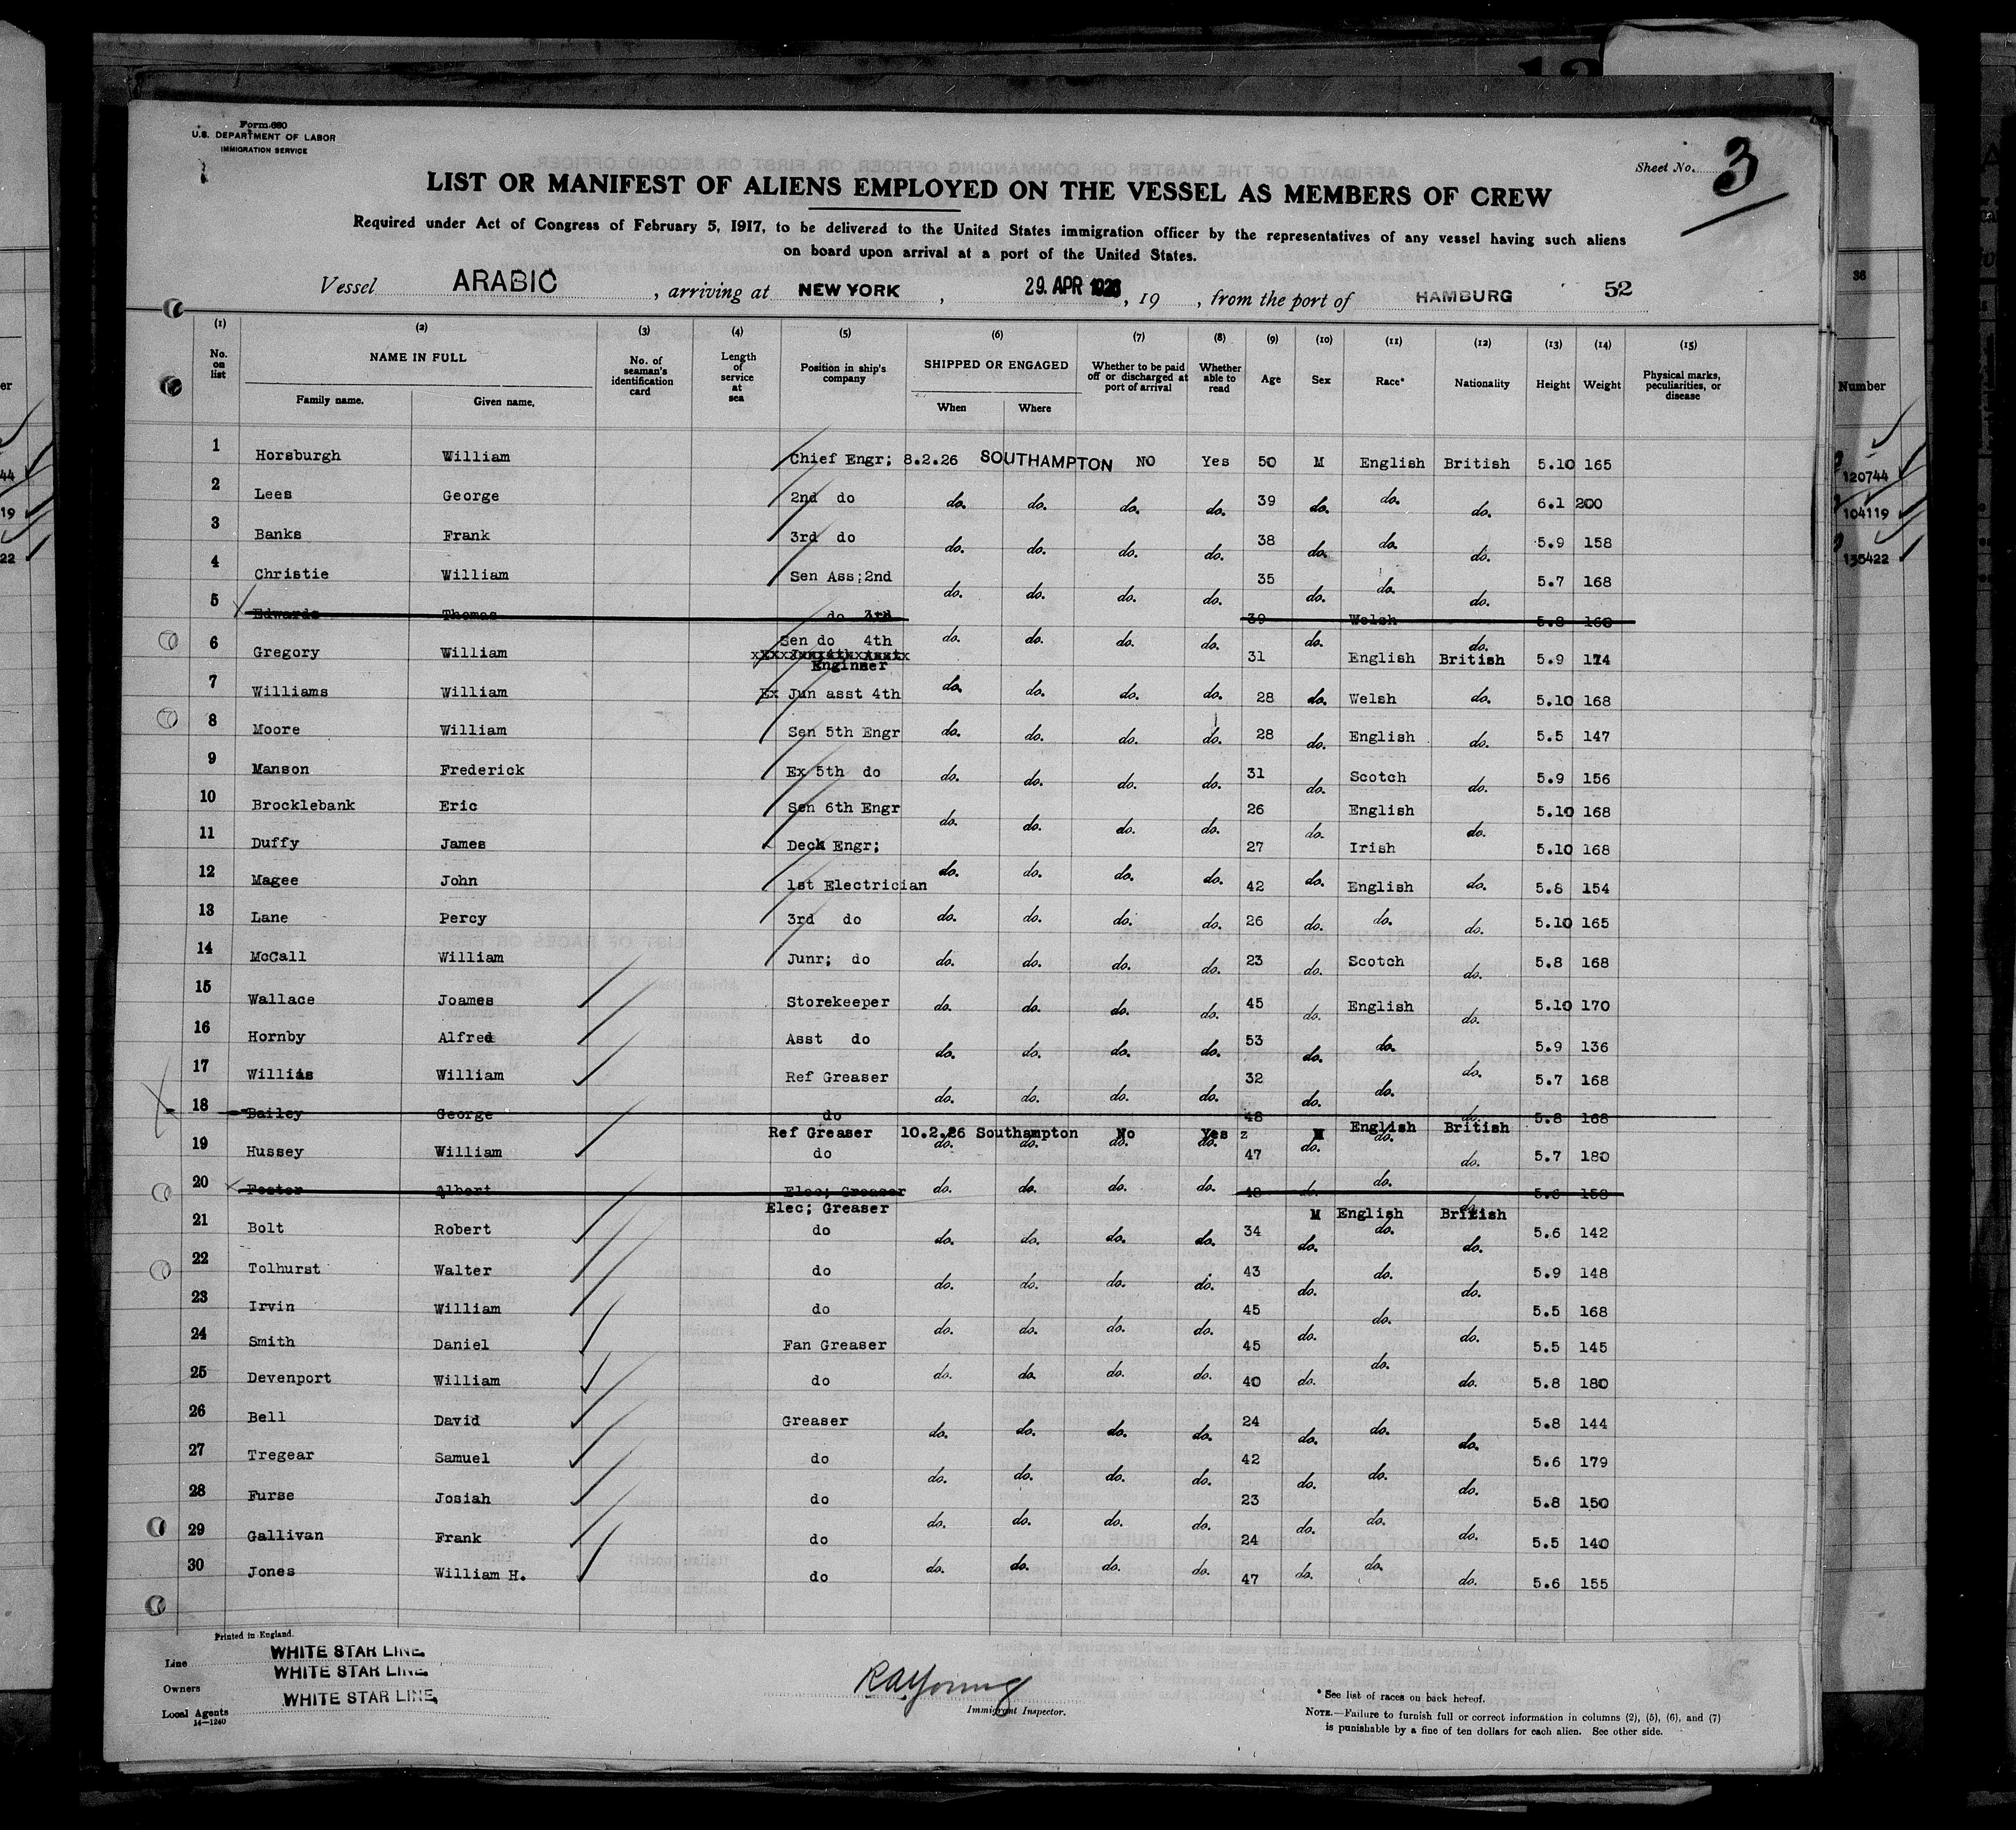 Form 680
U.S. DEPARTMENT OF LABOR
IMMIGRATION SERVICE
Sheet No. 3
LIST OR MANIFEST OF ALIENS EMPLOYED ON THE VESSEL AS MEMBERS OF CREW
Required under Act of Congress of February 5, 1917, to be delivered to the United States immigration officer by the representatives of any vessel having such aliens
on board upon arrival at a port of the United States.
Vessel ARABIC, arriving at NEW YORK, 29. APR 1926, 19 , from the port of HAMBURG 52
(1) (2) (3) (4) (5) (6) (7) (8) (9) (10) (11) (12) (13) (14) (15)
No. on list NAME IN FULL Family name. Given name. No. of seaman's identification card Length of service at sea Position in ship's company SHIPPED OR ENGAGED When Where Whether to be paid off or discharged at port of arrival Whether able to read Age Sex Race* Nationality Height Weight Physical marks, peculiarities, or disease
1 Horsburgh William Chief Engr; 8.2.26 SOUTHAMPTON NO Yes 50 M English British 5.10 165
2 Lees George 2nd do do. do. do. do. 39 do. do. do. 6.1 200
3 Banks Frank 3rd do do. do. do. do. 38 do. do. do. 5.9 158
4 Christie William Sen Ass;2nd do. do. do. do. 35 do. do. do. 5.7 168
5 Edwards Thomas do 3rd do. do. do. do. 39 do. Welsh do. 5.8 168
6 Gregory William Sen do 4th Engineer 31 English British 5.9 174
7 Williams William Ex Jun asst 4th do. do. do. do. 28 do. Welsh do. 5.10 168
8 Moore William Sen 5th Engr do. do. do. do. 28 do. English do. 5.5 147
9 Manson Frederick Ex 5th do do. do. do. do. 31 do. Scotch do. 5.9 156
10 Brocklebank Eric Sen 6th Engr do. do. do. do. 26 do. English do. 5.10 168
11 Duffy James Deck Engr; 27 Irish 5.10 168
12 Magee John 1st Electrician do. do. do. do. 42 do. English do. 5.8 154
13 Lane Percy 3rd do do. do. do. do. 26 do. do. do. 5.10 165
14 McCall William Junr; do do. do. do. do. 23 do. Scotch do. 5.8 168
15 Wallace Joames Storekeeper do. do. do. do. 45 do. English do. 5.10 170
16 Hornby Alfred Asst do do. do. do. do. 53 do. do. do. 5.9 136
17 Willias William Ref Greaser do. do. do. do. 32 do. do. do. 5.7 168
18 Bailey George do 48 do. 5.8 168
Ref Greaser 10.2.26 Southampton No Yes z M English British
19 Hussey William do do. do. do. do. 47 do. do. do. 5.7 180
20 Foster Albert Elec; Greaser do. do. do. do. 48 do. do. do. 5.6 158
Elec; Greaser M English British
21 Bolt Robert do do. do. do. do. 34 do. do. do. 5.6 142
22 Tolhurst Walter do do. do. do. do. 43 do. do. do. 5.9 148
23 Irvin William do do. do. do. do. 45 do. do. do. 5.5 168
24 Smith Daniel Fan Greaser do. do. do. do. 45 do. do. do. 5.5 145
25 Devenport William do 40 do. do. 5.8 180
26 Bell David Greaser do. do. do. do. 24 do. do. do. 5.8 144
27 Tregear Samuel do do. do. do. do. 42 do. do. do. 5.6 179
28 Furse Josiah do do. do. do. do. 23 do. do. do. 5.8 150
29 Gallivan Frank do do. do. do. do. 24 do. do. do. 5.5 140
30 Jones William H. do 47 do. do. 5.6 155
Printed in England.
Line WHITE STAR LINE.
Owners WHITE STAR LINE.
Local Agents WHITE STAR LINE.
14—1240
RAYoung
Immigrant Inspector.
* See list of races on back hereof.
NOTE.—Failure to furnish full or correct information in columns (2), (5), (6), and (7)
is punishable by a fine of ten dollars for each alien. See other side.
36
Number
120744
104119
135422
er
44
19
22